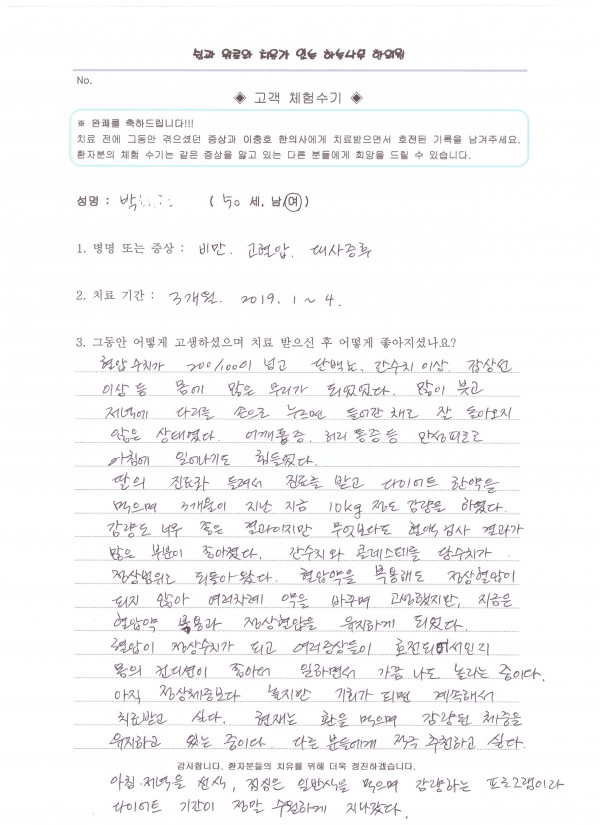 No.
◈ 고객 체험수기 ◈
※ 완쾌를 축하드립니다!!!
치료 전에 그동안 겪으셨던 증상과 이충호 한의사에게 치료받으면서 호전된 기록을 남겨주세요.
환자분의 체험 수기는 같은 증상을 앓고 있는 다른 분들에게 희망을 드릴 수 있습니다.
성명 : 박 ( 50 세, 남/여 )
1. 병명 또는 증상 : 비만. 고혈압. 대사증후
2. 치료 기간 : 3개월. 2019. 1 ~ 4.
3. 그동안 어떻게 고생하셨으며 치료 받으신 후 어떻게 좋아지셨나요?
혈압수치가 200/100이 넘고 단백뇨, 간수치 이상. 갑상선
이상 등 몸에 많은 무리가 되었었다. 많이 붓고
저녁에 다리를 손으로 누르면 들어간 채로 잘 돌아오지
않은 상태였다. 어깨통증. 허리 통증 등 만성피로로
아침에 일어나기도 힘들었다.
딸의 진료차 들려서 진료를 받고 다이어트 한약을
먹으며 3개월이 지난 지금 10kg 정도 감량을 하였다.
감량도 너무 좋은 결과이지만 무엇보다도 혈액검사 결과가
많은 부분이 좋아졌다. 간수치와 콜레스테롤 당수치가
정상범위로 되돌아왔다. 혈압약을 복용해도 정상혈압이
되지 않아 여러차례 약을 바꾸며 고생했지만, 지금은
혈압약 복용과 정상혈압을 유지하게 되었다.
혈압이 정상수치가 되고 여러증상들이 호전되어서인지
몸의 컨디션이 좋아져 일하면서 가끔 나도 놀라는 중이다.
아직 정상체중보다 높지만 기회가 되면 계속해서
치료받고 싶다. 현재는 환을 먹으며 감량된 체중을
유지하고 있는 중이다. 다른 분들에게 적극 추천하고 싶다.
감사합니다. 환자분들의 치유를 위해 더욱 정진하겠습니다.
아침·저녁을 선식, 점심은 일반식을 먹으며 감량하는 프로그램이라
다이어트 기간이 정말 수월하게 지나갔다.